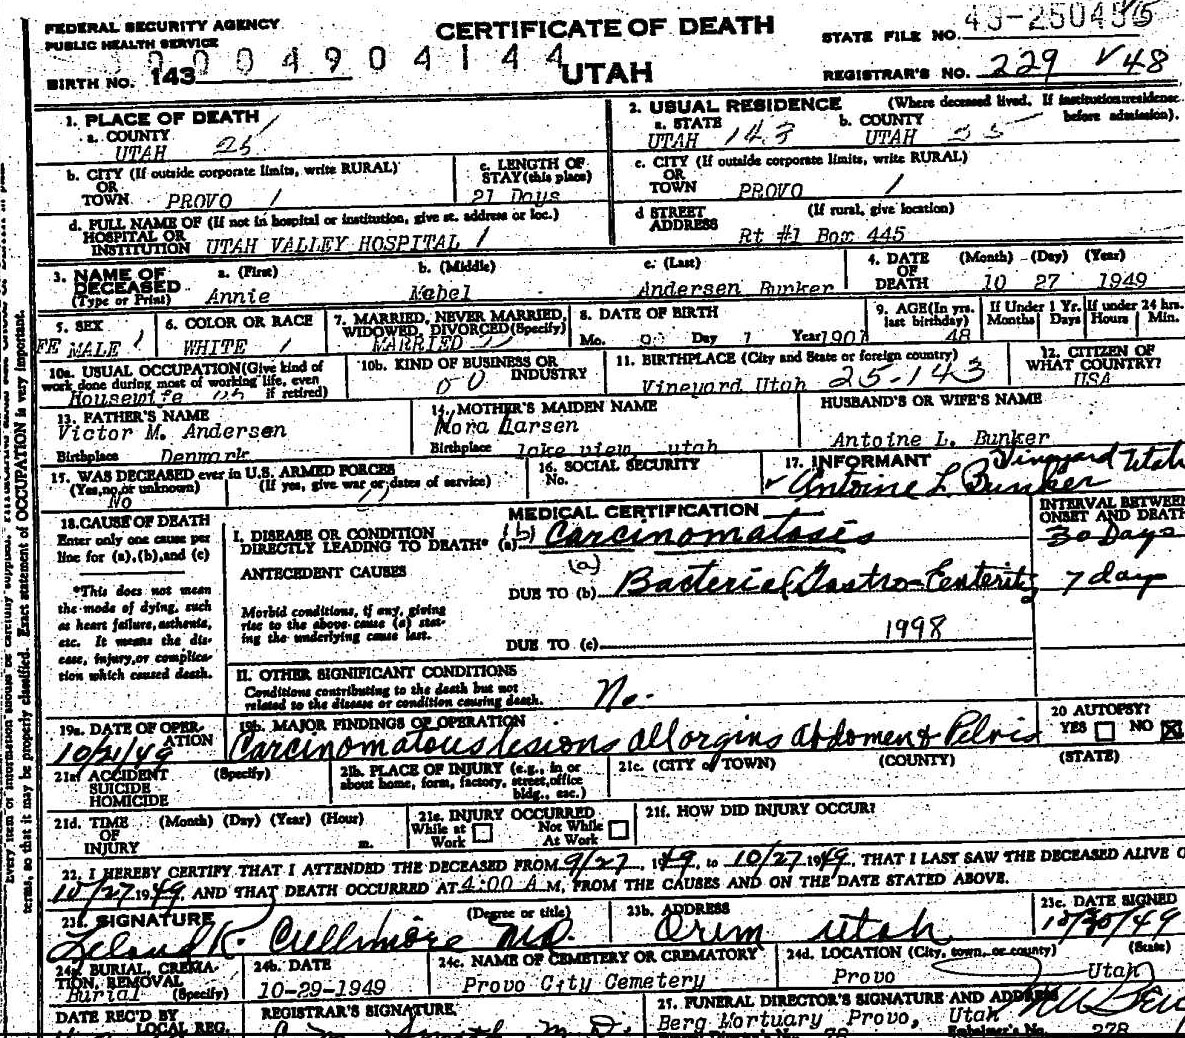 FEDERAL SECURITY AGENCY
PUBLIC HEALTH SERVICE
CERTIFICATE OF DEATH
STATE FILE NO.
0004904144
BIRTH NO. 143
UTAH
REGISTRAR'S NO. 229 V48
1. PLACE OF DEATH
a. COUNTY
UTAH 25
2. USUAL RESIDENCE (Where deceased lived. If institution: residence before admission).
a. STATE UTAH 143 b. COUNTY UTAH
b. CITY (If outside corporate limits, write RURAL)
OR
TOWN PROVO 1
c. LENGTH OF STAY (this place)
21 Days
c. CITY (If outside corporate limits, write RURAL)
OR
TOWN PROVO 1
d. FULL NAME OF (If not in hospital or institution, give st. address or loc.)
HOSPITAL OR
INSTITUTION UTAH VALLEY HOSPITAL 1
d STREET (If rural, give location)
ADDRESS Rt #1 Box 445
3. NAME OF DECEASED
(Type or Print)
a. (First) Annie
b. (Middle) Mabel
c. (Last) Andersen Bunker
4. DATE OF DEATH (Month) (Day) (Year)
10 27 1949
5. SEX
FEMALE 1
6. COLOR OR RACE
WHITE 1
7. MARRIED, NEVER MARRIED, WIDOWED, DIVORCED (Specify)
MARRIED
8. DATE OF BIRTH
Mo. Day 1 Year 1901
9. AGE (In yrs. last birthday)
48
If Under 1 Yr. Months Days
If under 24 hrs. Hours Min.
10a. USUAL OCCUPATION (Give kind of work done during most of working life, even if retired)
Housewife
10b. KIND OF BUSINESS OR INDUSTRY
11. BIRTHPLACE (City and State or foreign country)
Vineyard Utah 25-143
12. CITIZEN OF WHAT COUNTRY?
USA
13. FATHER'S NAME
Victor M. Andersen
Birthplace Denmark
14. MOTHER'S MAIDEN NAME
Nora Larsen
Birthplace lake view, utah
HUSBAND'S OR WIFE'S NAME
Antoine L. Bunker
15. WAS DECEASED ever in U.S. ARMED FORCES
(Yes, no, or unknown) (If yes, give war or dates of service)
No
16. SOCIAL SECURITY
No.
17. INFORMANT Vineyard Utah
Antoine L Bunker
18. CAUSE OF DEATH
Enter only one cause per line for (a), (b), and (c)
*This does not mean the mode of dying, such as heart failure, asthenia, etc. It means the disease, injury, or complication which caused death.
MEDICAL CERTIFICATION
INTERVAL BETWEEN ONSET AND DEATH
I. DISEASE OR CONDITION
DIRECTLY LEADING TO DEATH* (a) (b) Carcinomatosis 30 Days
ANTECEDENT CAUSES
(a)
DUE TO (b) Bacterial Gastro-Enteritis 7 days
Morbid conditions, if any, giving rise to the above cause (a) stating the underlying cause last.
1998
DUE TO (c)
II. OTHER SIGNIFICANT CONDITIONS
Conditions contributing to the death but not related to the disease or condition causing death. No.
19a. DATE OF OPERATION
10/21/49
19b. MAJOR FINDINGS OF OPERATION
Carcinomatous lesions all orgins abdomen & Pelvis
20 AUTOPSY?
YES NO
21a. ACCIDENT (Specify)
SUICIDE
HOMICIDE
21b. PLACE OF INJURY (e.g., in or about home, farm, factory, street, office bldg., etc.)
21c. (CITY or TOWN) (COUNTY) (STATE)
21d. TIME (Month) (Day) (Year) (Hour)
OF
INJURY m.
21e. INJURY OCCURRED
While at Work Not While At Work
21f. HOW DID INJURY OCCUR?
22. I HEREBY CERTIFY THAT I ATTENDED THE DECEASED FROM 9/27, 1949, to 10/27 1949, THAT I LAST SAW THE DECEASED ALIVE O
10/27 1949, AND THAT DEATH OCCURRED AT 4:00 A M, FROM THE CAUSES AND ON THE DATE STATED ABOVE.
23a. SIGNATURE (Degree or title)
Leland K. Cullimore MD.
23b. ADDRESS
Orem Utah
23c. DATE SIGNED
10/30/49
24a. BURIAL, CREMATION, REMOVAL (Specify)
Burial
24b. DATE
10-29-1949
24c. NAME OF CEMETERY OR CREMATORY
Provo City Cemetery
24d. LOCATION (City, town, or county) (State)
Provo Utah
DATE REC'D BY LOCAL REG.
REGISTRAR'S SIGNATURE
25. FUNERAL DIRECTOR'S SIGNATURE AND ADDRESS
Berg Mortuary Provo, Utah
Embalmer's No. 278